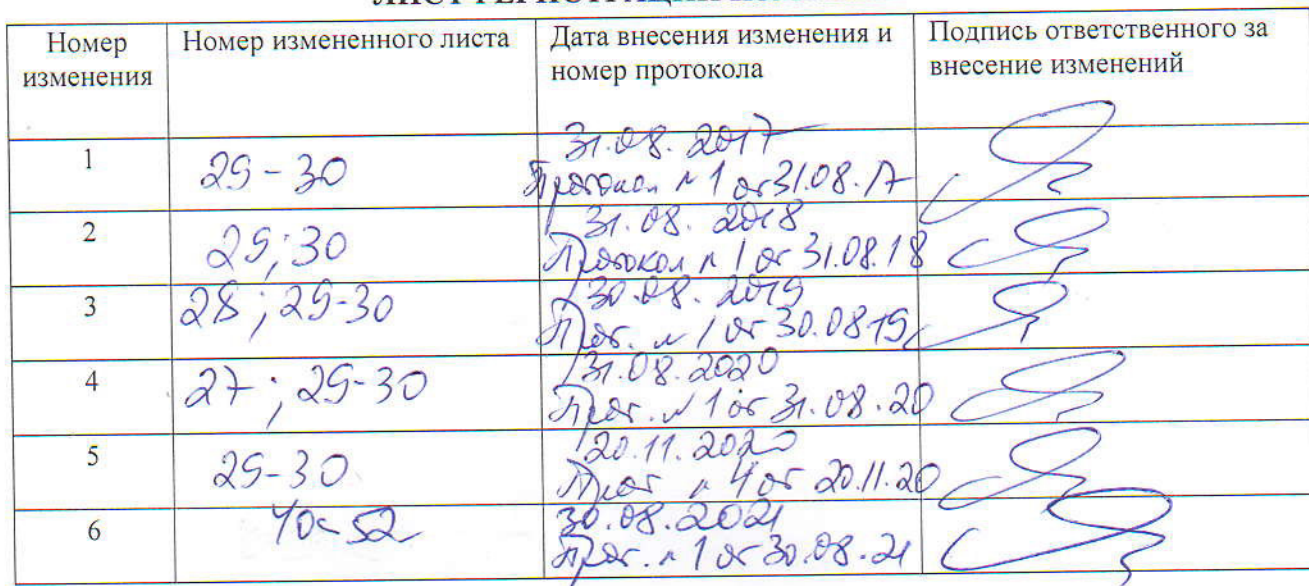 Номер изменения
Номер измененного листа
Дата внесения изменения и номер протокола
Подпись ответственного за внесение изменений
1
29-30
31.08.2017
Протокол № 1 от 31.08.17
2
29; 30
31.08.2018
Протокол № 1 от 31.08.18
3
28; 29-30
30.08.2019
Прот. № 1 от 30.08.19
4
27; 29-30
31.08.2020
Прот. № 1 от 31.08.20
5
29-30
20.11.2020
Прот № 4 от 20.11.20
6
40-52
30.08.2021
Прот. № 1 от 30.08.21